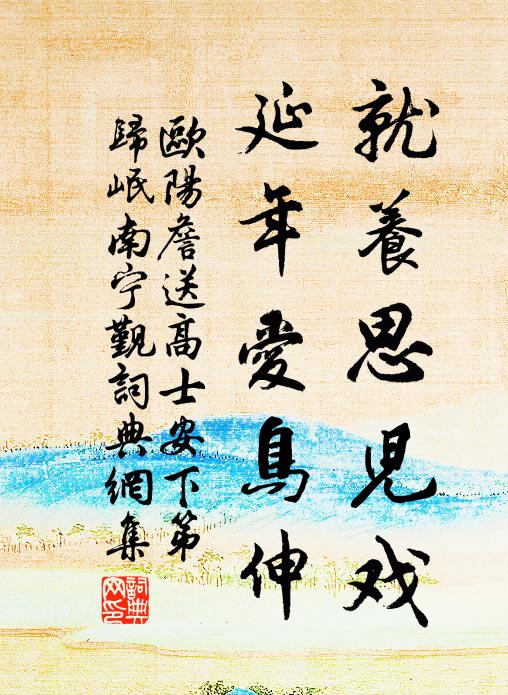 就養思兒戏
延年愛鳥伸
歐陽詹送高士安下第
歸岷南宁覲詞典網集
詞典